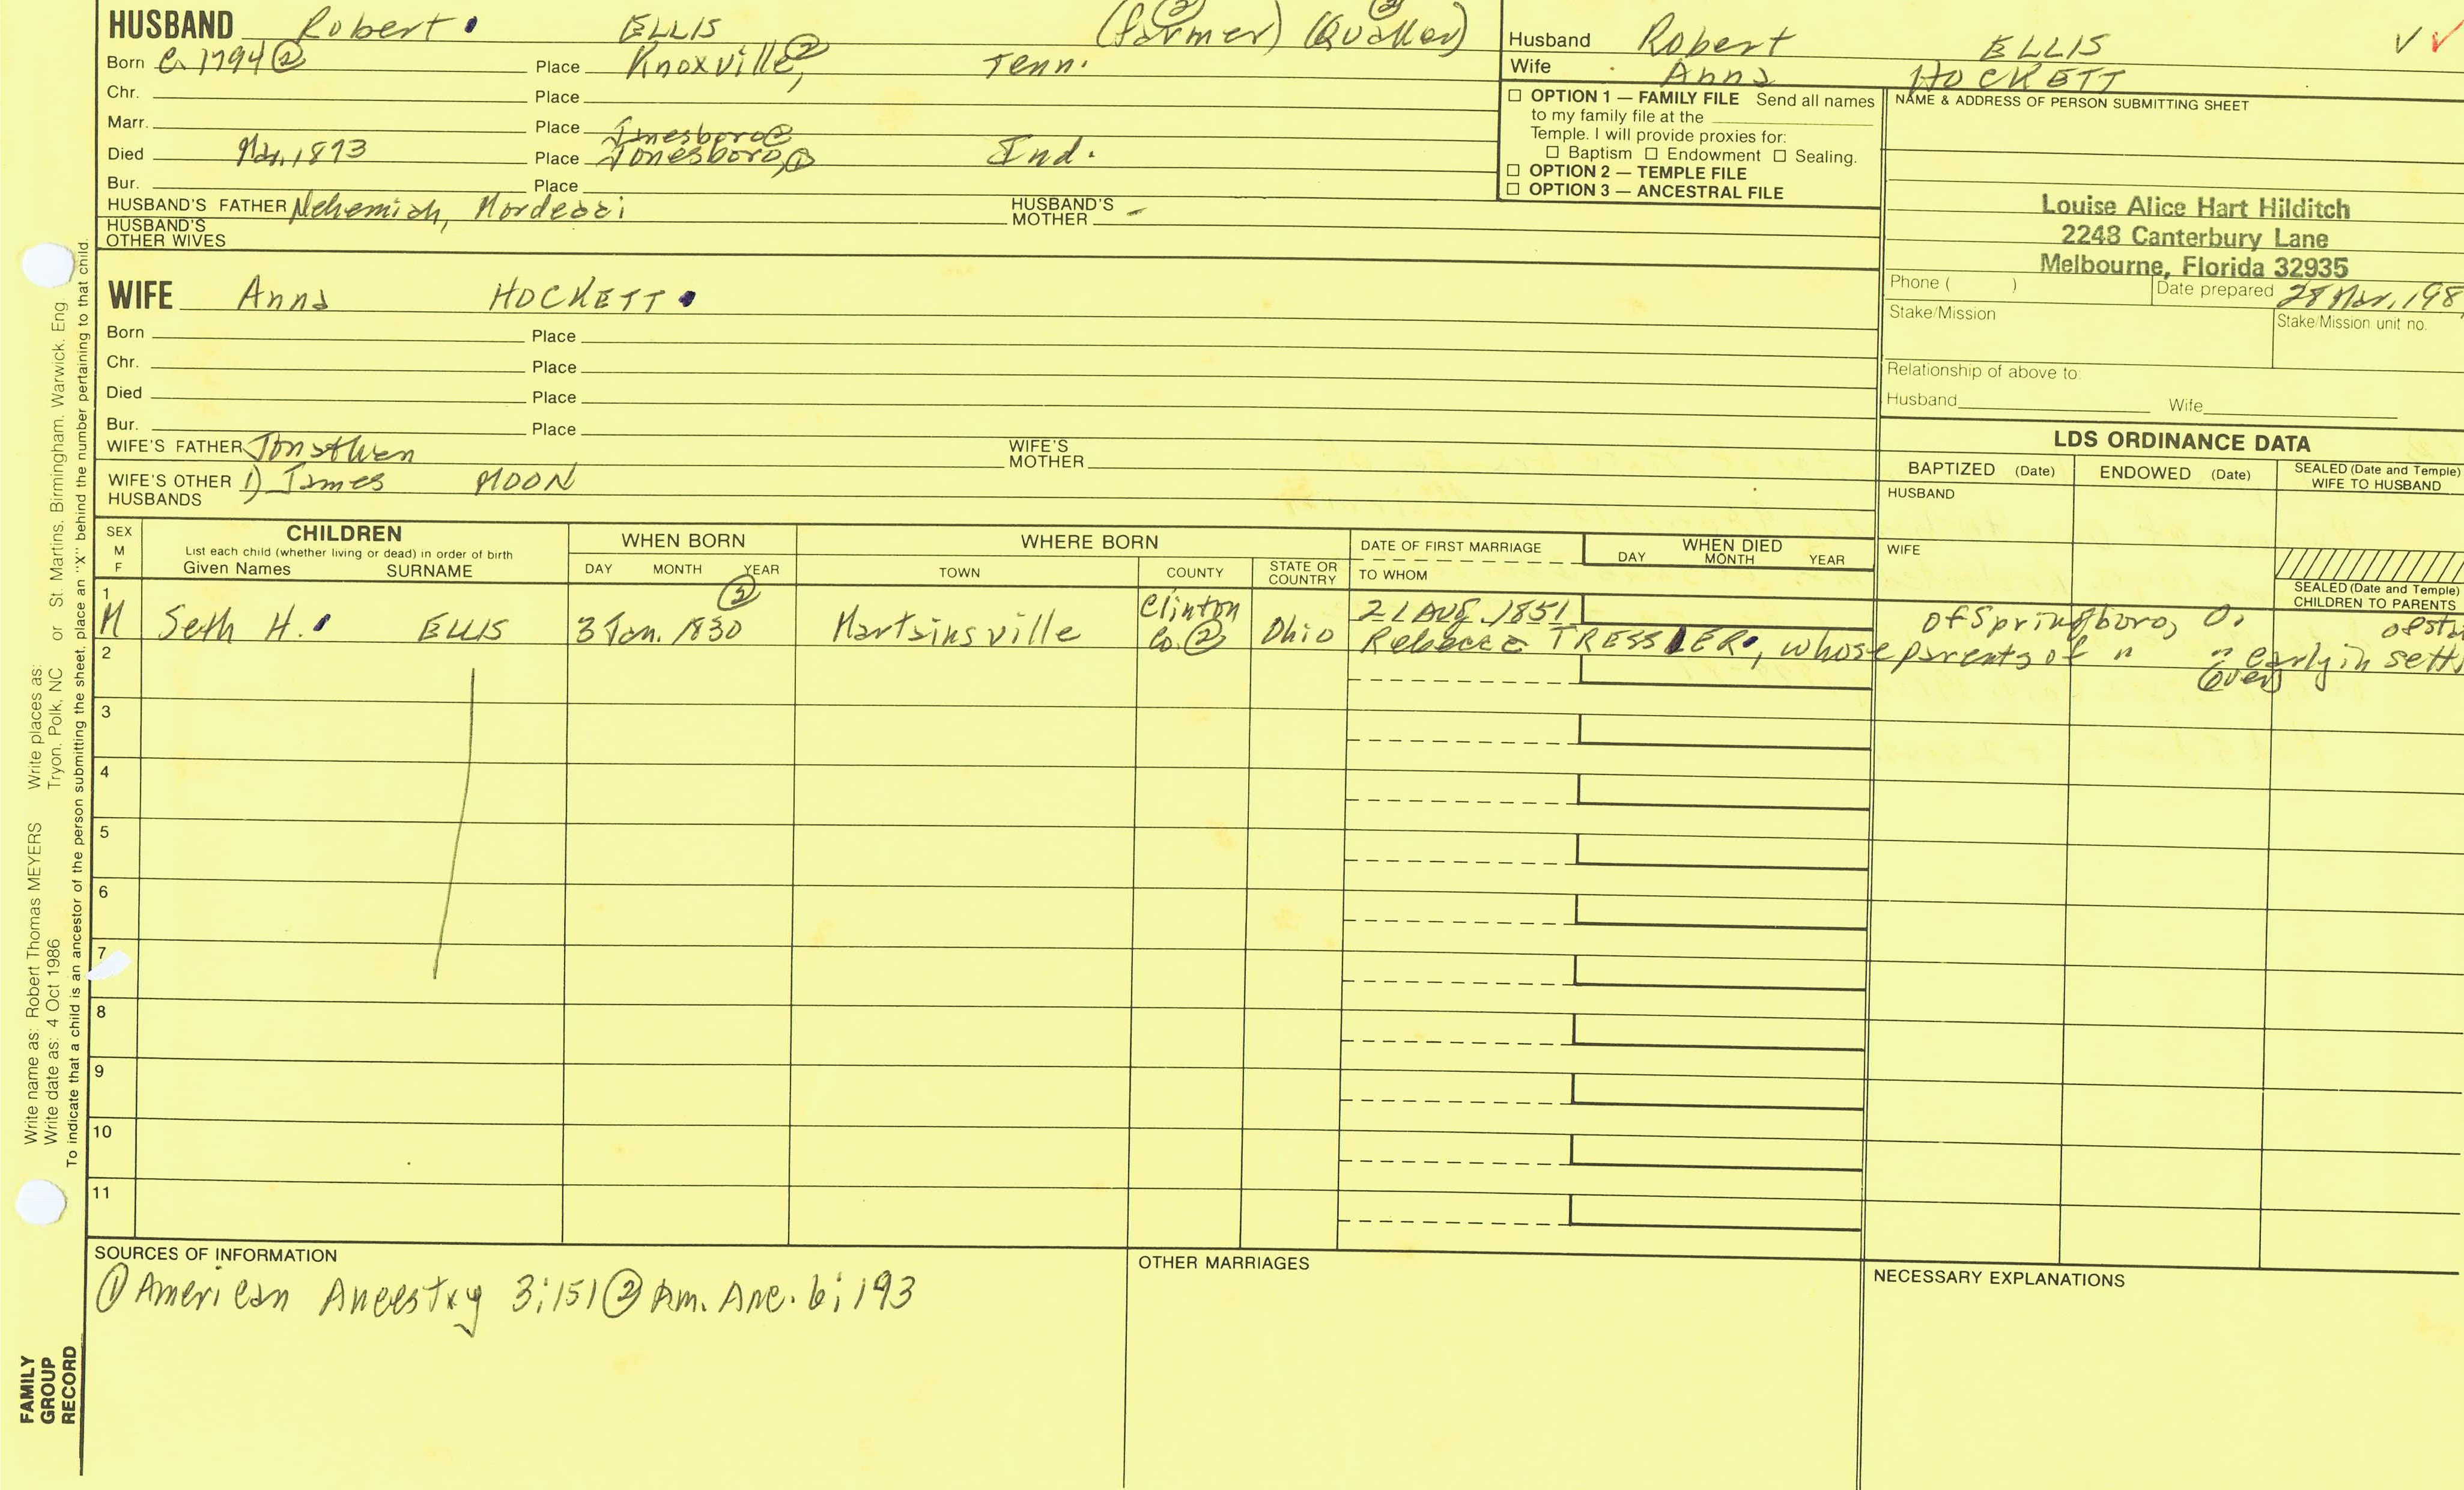 HUSBAND Robert ELLIS (farmer) ② (Quaker) ②
Born C. 1794 ② Place Knoxville, ② Tenn.
Chr. Place
Marr. Place Jonesboro ②
Died Mar. 1873 Place Jonesboro, ① Ind.
Bur. Place
HUSBAND'S FATHER Nehemiah, Mordecai HUSBAND'S MOTHER -
HUSBAND'S OTHER WIVES
WIFE Anna HOCKETT
Born Place
Chr. Place
Died Place
Bur. Place
WIFE'S FATHER Jonathan WIFE'S MOTHER
WIFE'S OTHER HUSBANDS 1) James MOON
Husband Robert ELLIS ✓ ✓
Wife Anna HOCKETT
☐ OPTION 1 — FAMILY FILE Send all names
to my family file at the
Temple. I will provide proxies for:
☐ Baptism ☐ Endowment ☐ Sealing.
☐ OPTION 2 — TEMPLE FILE
☐ OPTION 3 — ANCESTRAL FILE
NAME & ADDRESS OF PERSON SUBMITTING SHEET
Louise Alice Hart Hilditch
2248 Canterbury Lane
Melbourne, Florida 32935
Phone ( ) Date prepared 28 Mar. 198
Stake/Mission Stake/Mission unit no.
Relationship of above to:
Husband Wife
LDS ORDINANCE DATA
BAPTIZED (Date) ENDOWED (Date) SEALED (Date and Temple) WIFE TO HUSBAND
HUSBAND
WIFE
SEALED (Date and Temple) CHILDREN TO PARENTS
SEX M F
CHILDREN
List each child (whether living or dead) in order of birth
Given Names SURNAME
WHEN BORN
DAY MONTH YEAR
WHERE BORN
TOWN COUNTY STATE OR COUNTRY
DATE OF FIRST MARRIAGE
TO WHOM
WHEN DIED
DAY MONTH YEAR
1 M Seth H. ELLIS 3 Jan. 1830 ② Martsinsville Clinton Co. ② Ohio 21 Aug. 1851
Rebecca TRESSLER, whose parents of " " early in
of Springboro, O.
(over)
2
3
4
5
6
7
8
9
10
11
SOURCES OF INFORMATION
① American Ancestry 3:151 ② Am. Anc. 6:193
OTHER MARRIAGES
NECESSARY EXPLANATIONS
Write name as: Robert Thomas MEYERS Write places as: St. Martins, Birmingham, Warwick, Eng
Write date as: 4 Oct 1986 or Tryon, Polk, NC
To indicate that a child is an ancestor of the person submitting the sheet, place an "X" behind the number pertaining to that child.
FAMILY
GROUP
RECORD